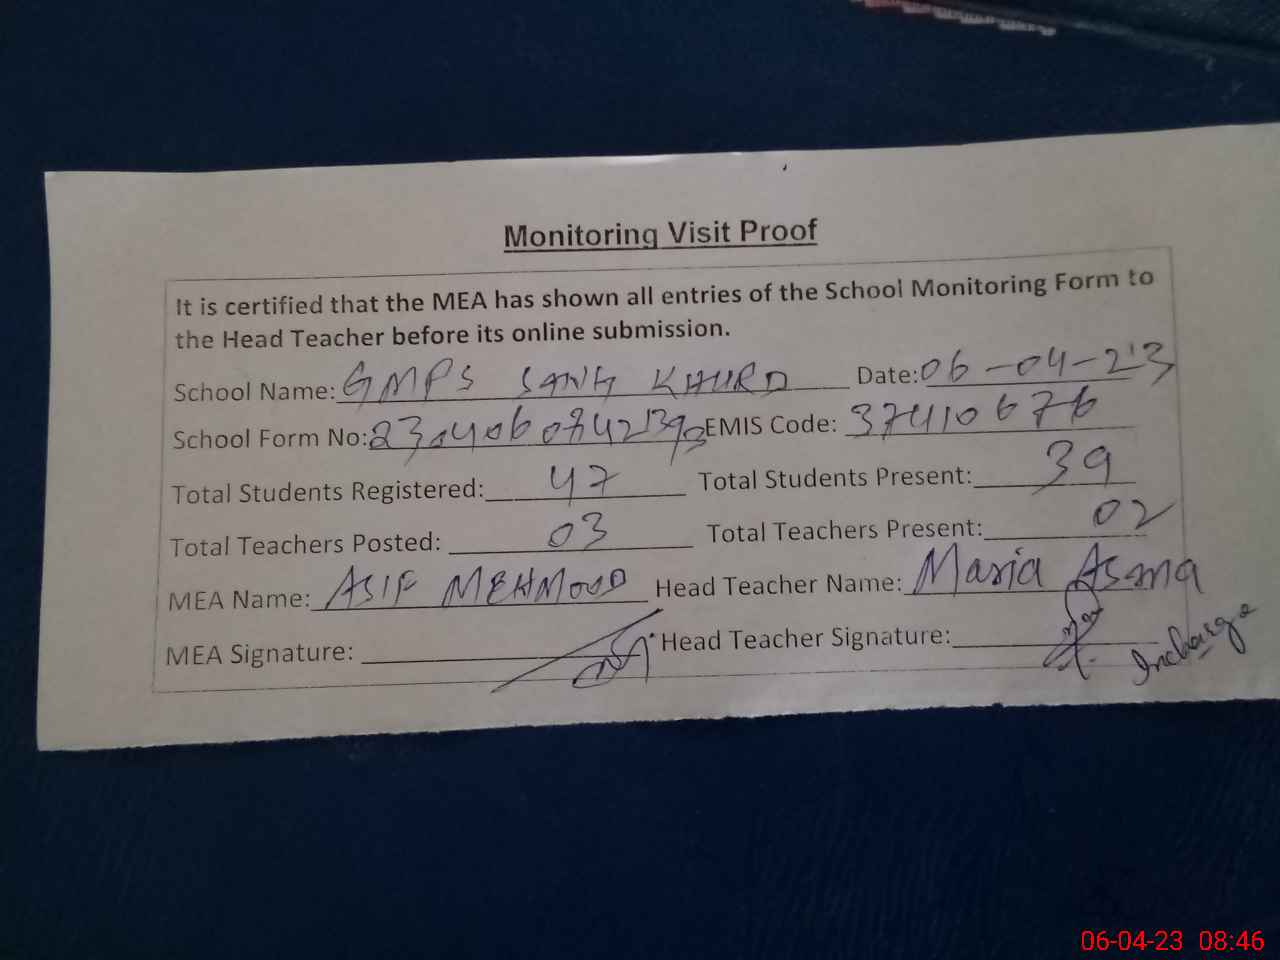 Monitoring Visit Proof
It is certified that the MEA has shown all entries of the School Monitoring Form to
the Head Teacher before its online submission.
School Name: GMPS SANG KHURD Date: 06-04-23
School Form No: EMIS Code: 37410676
Total Students Registered: 47 Total Students Present: 39
Total Teachers Posted: 03 Total Teachers Present: 02
MEA Name: ASIF MEHMOOD Head Teacher Name: Maria Asma
MEA Signature: Head Teacher Signature: Incharge
06-04-23 08:46